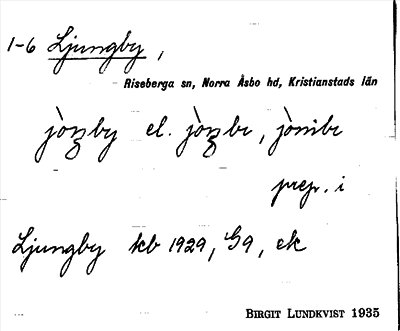 1-6 Ljungby,
Riseberga sn, Norra Åsbo hd, Kristianstads län
jòŋby el. jòŋbr, jòmbr
prep. i
Ljungby kb 1929, G9, ek
BIRGIT LUNDKVIST 1935